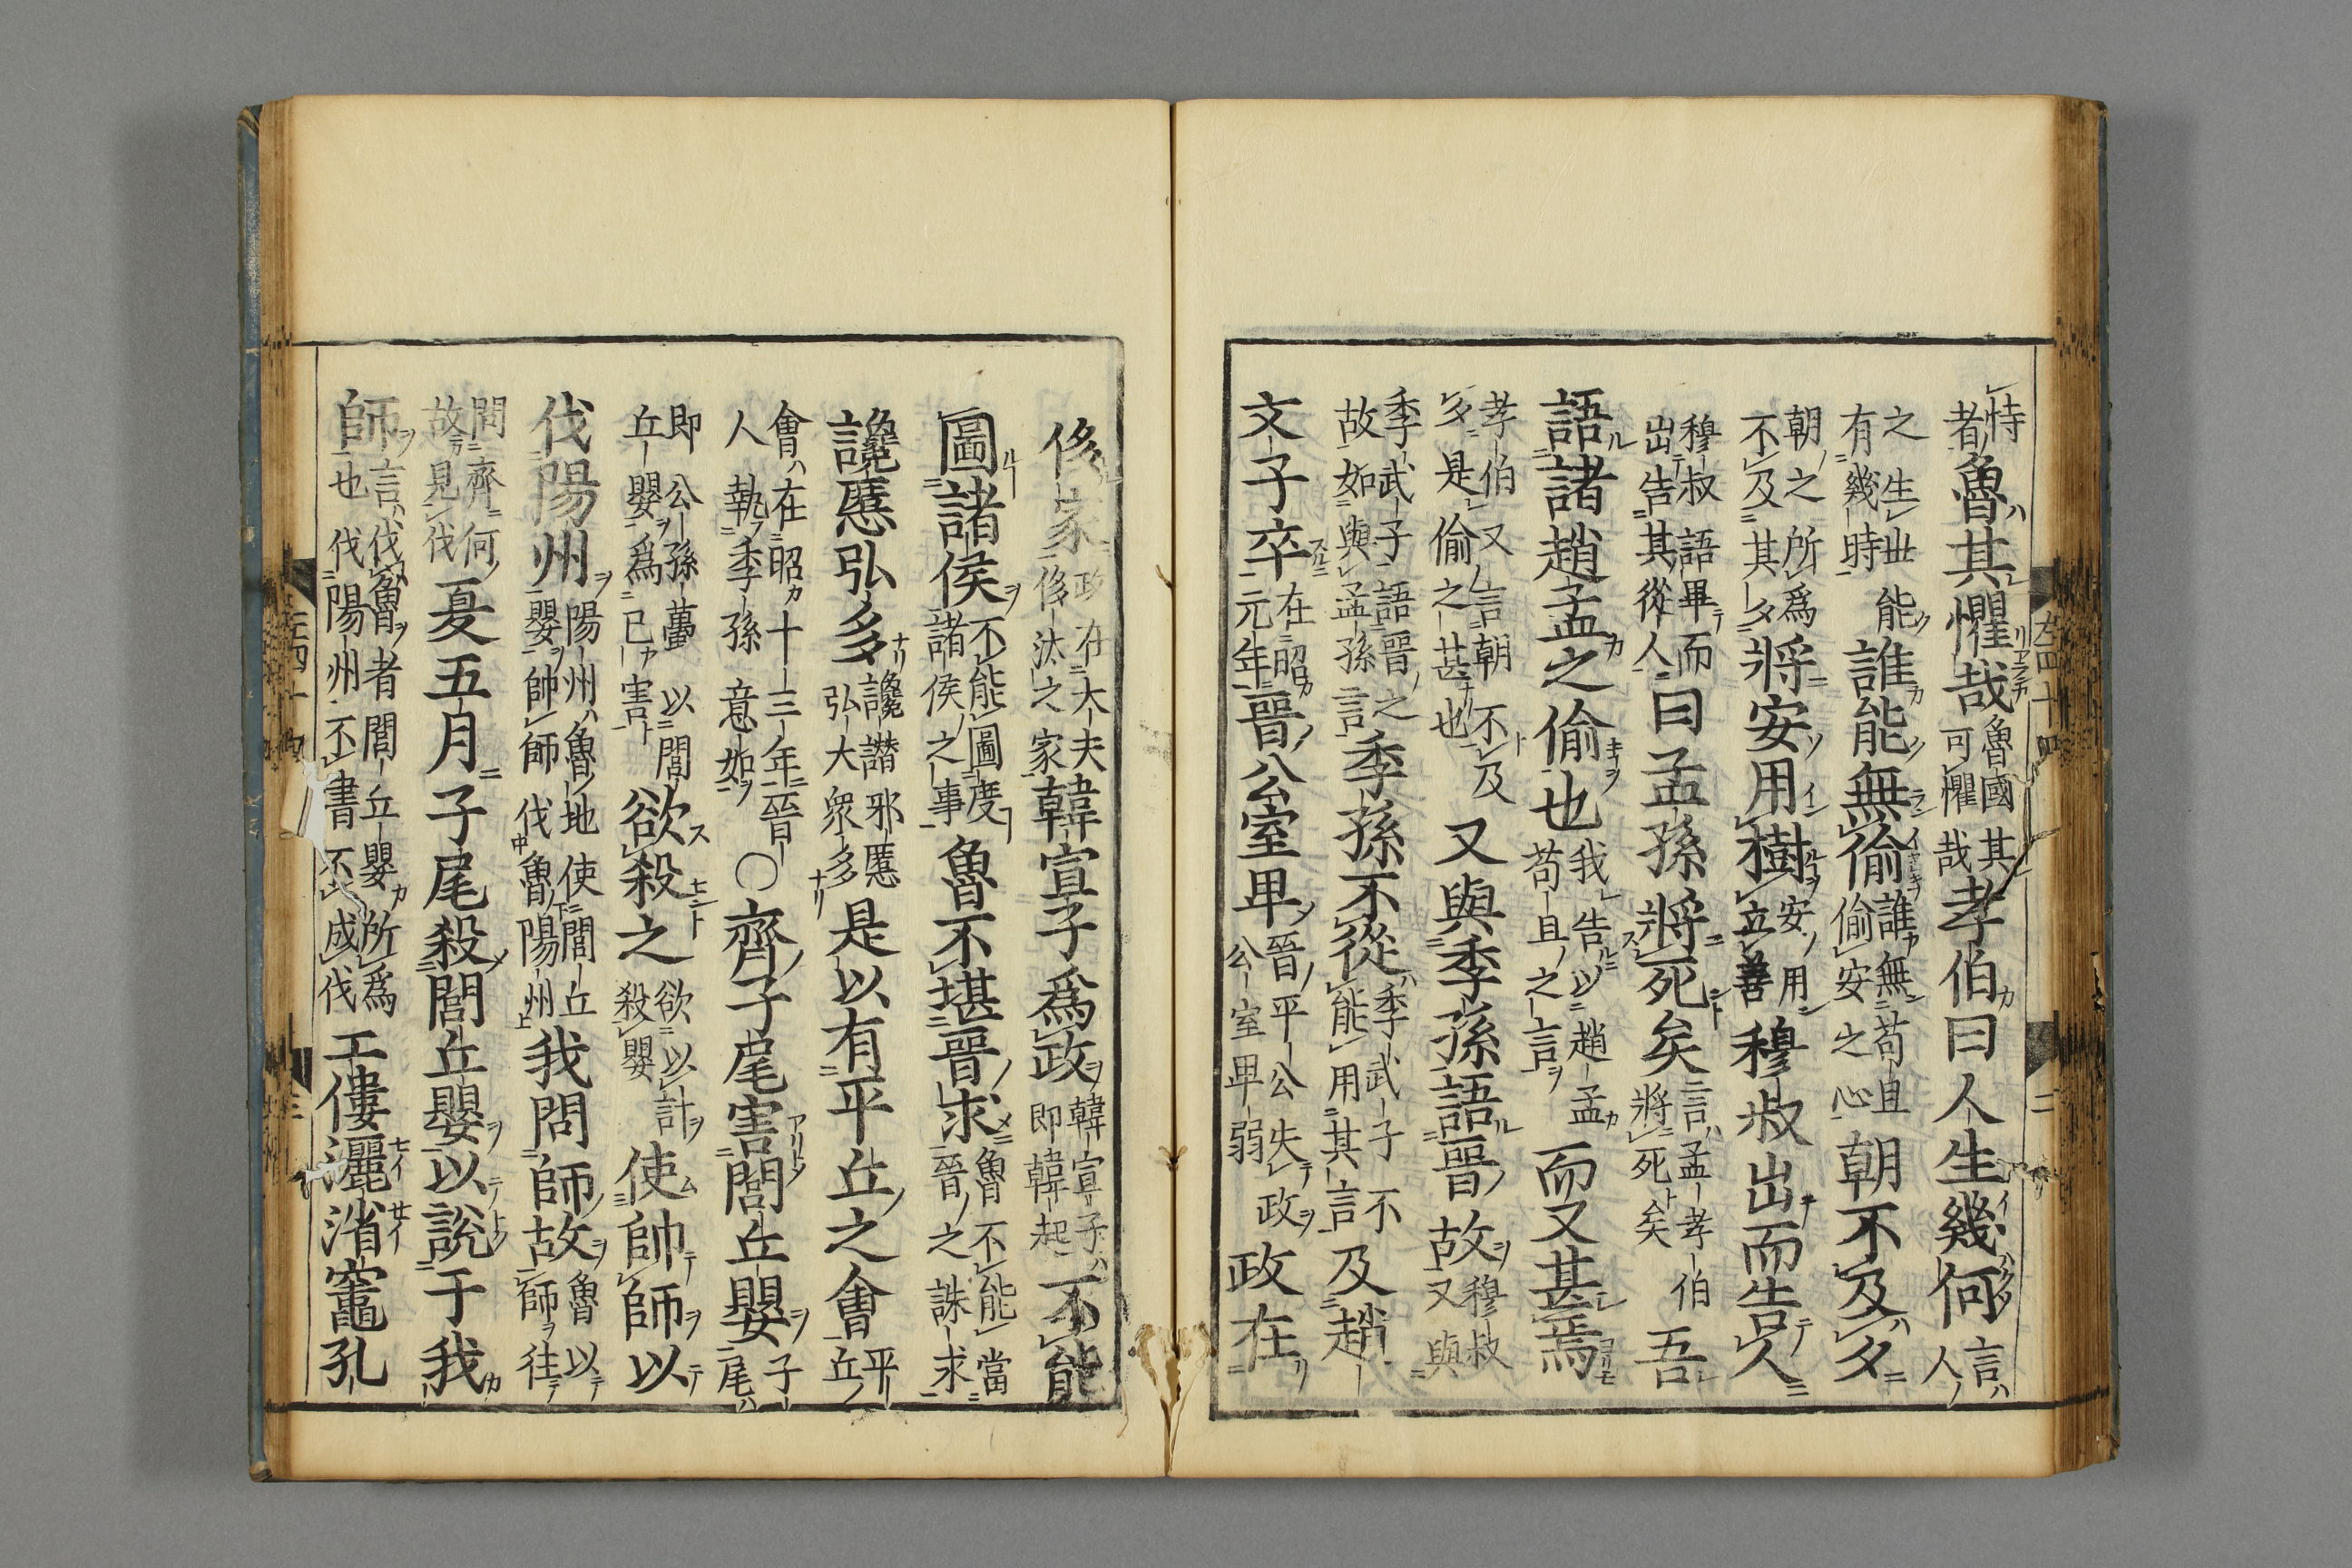 恃者魯其懼哉魯國其可懼哉孝伯曰人生幾何言人
之生世能有幾時誰能無偷誰無苟且偷安之心朝不及夕
朝之所爲不及其夕將安用樹安用立善穆叔出而告人
穆叔語畢而出告其從人曰孟孫將死矣言孟孝伯將死矣吾
語諸趙孟之偷也我告以趙孟苟且之言而又甚焉
孝伯又言朝不及夕是偷之甚也又與季孫語晉故穆叔又與
季武子語晉之故如與孟孫言季孫不從季武子不能用其言及趙
文子卒在昭元年晉公室卑晉平公失政公室卑弱政在
侈家政在大夫侈汰之家韓宣子爲政韓宣子即韓起不能
圖諸侯不能圖度諸侯之事魯不堪晉求魯不能當晉之誅求
讒慝弘多讒譖邪慝弘大衆多是以有平丘之會平丘
會在昭十三年晉人執季孫意如○齊子尾害閭丘嬰子尾
即公孫蠆以閭丘嬰爲己害欲殺之欲以計殺嬰使帥師以
伐陽州陽州魯地使閭丘嬰帥師伐魯陽州我問師故魯以師往
問齊何故見伐夏五月子尾殺閭丘嬰以說于我
師言伐魯者閭丘嬰所爲也伐陽州不書不成伐工僂灑渻竈孔